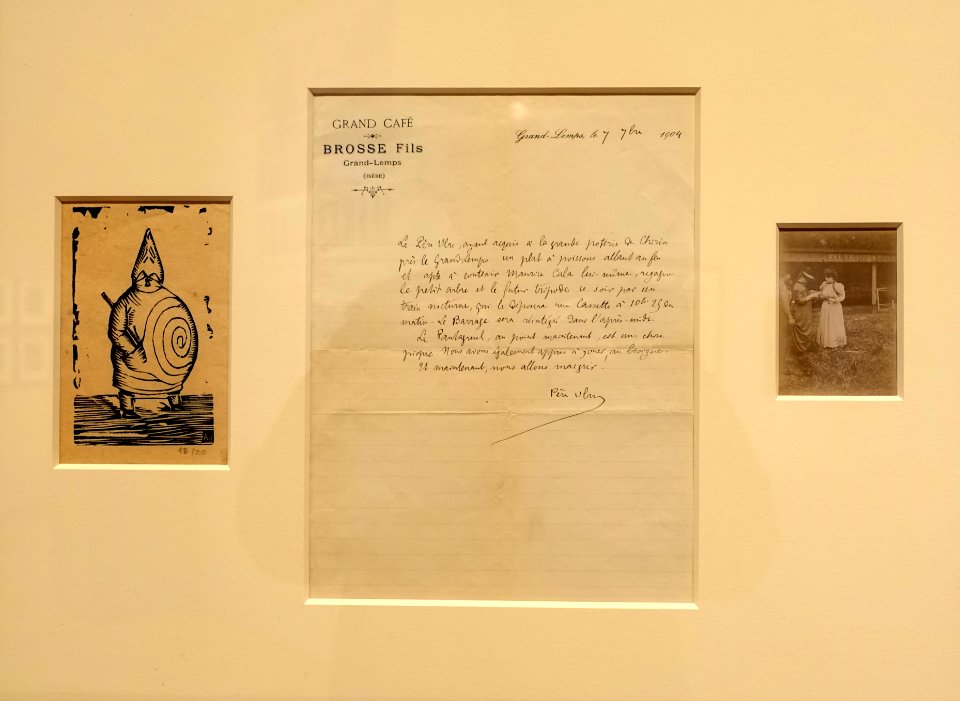 GRAND CAFÉ
BROSSE Fils
Grand-Lemps
(ISÈRE)
Grand-Lemps, le 7 7bre 1904
Le Père Ubu, ayant acquis à la grande poterie de
près le Grand-Lemps un plat à poissons allant au feu
et apte à contenir Maurice lui-même, regagne
le petit arbre et le futur tripode ce soir par un
train nocturne, qui le déposera rue Cassette à 10h 25 du
matin. Le Barrage sera réintégré dans l'après-midi.
Le Pantagruel, au point maintenant, est une chose
propre. Nous avons également appris à jouer au
Et maintenant, nous allons maigrir.
Père Ubu
18/20